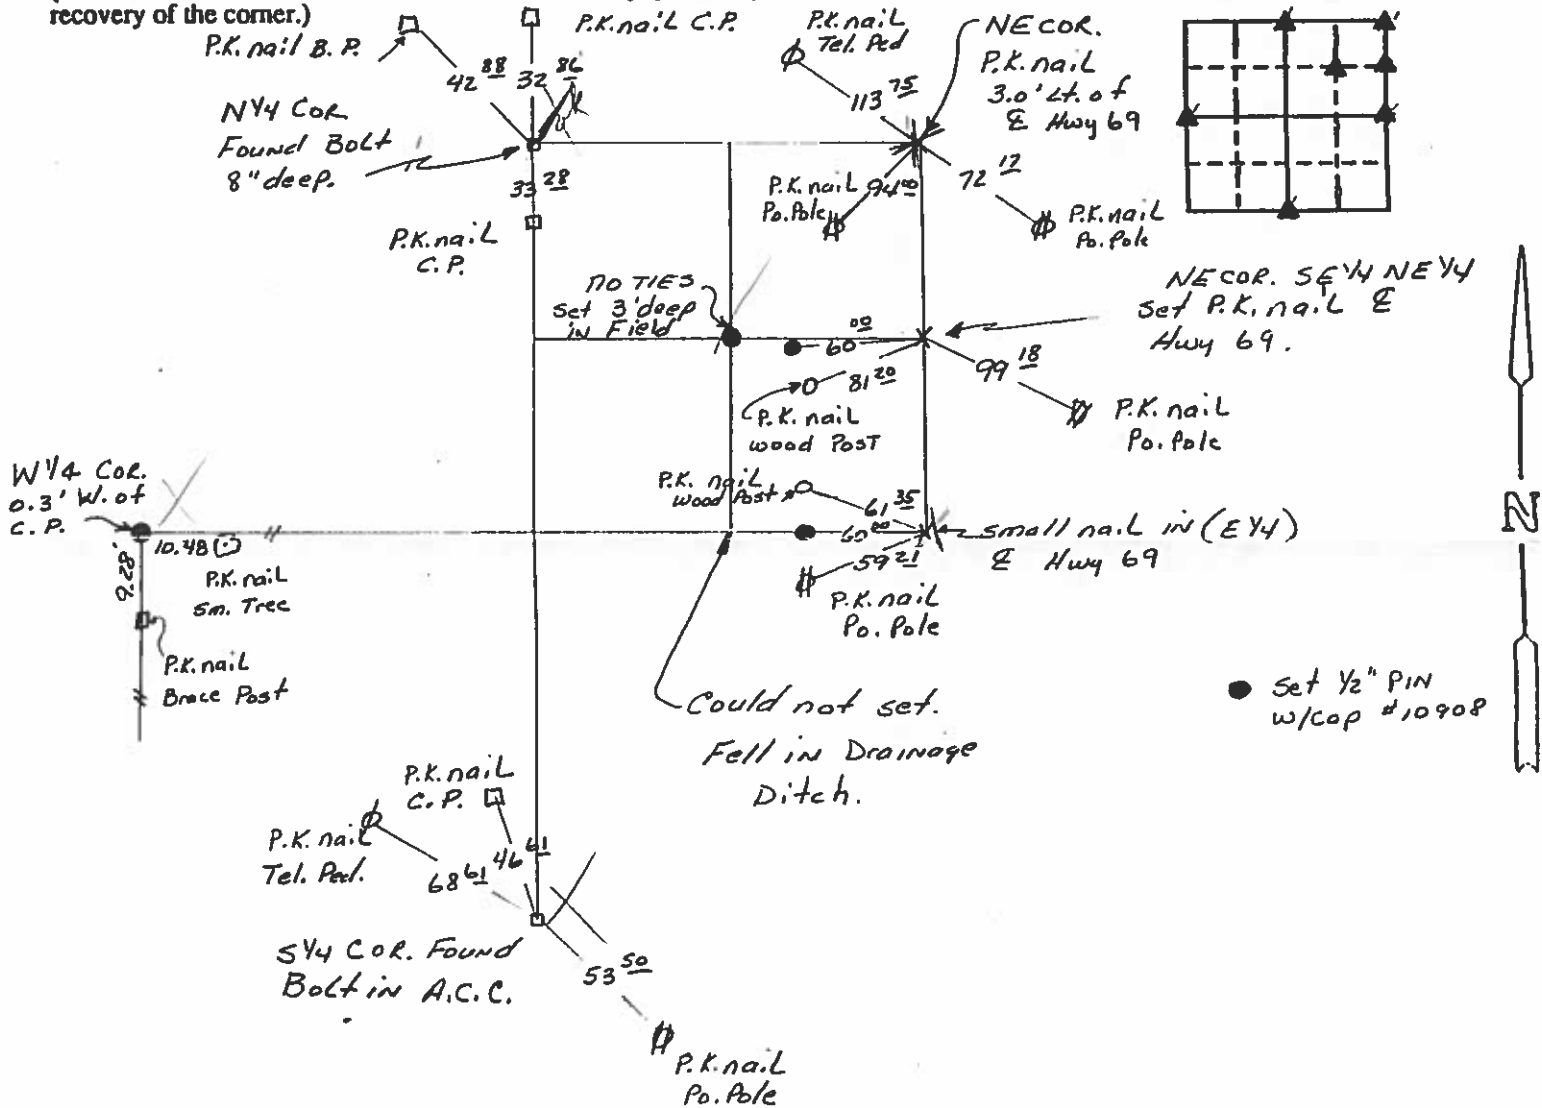 recovery of the corner.)
P.K. nail B.P.
P.K. nail C.P.
P.K. nail
Tel. Ped
NE COR.
P.K. nail
3.0' Lt. of
℄ Hwy 69
42 88
32 86
113 75
N 1/4 COR
Found Bolt
8" deep.
33 28
P.K. nail
C.P.
P.K. nail
Po. Pole
94 00
72 12
P.K. nail
Po. Pole
NO TIES
Set 3' deep
in Field
NE COR. SE 1/4 NE 1/4
Set P.K. nail ℄
Hwy 69.
60 00
81 20
99 18
P.K. nail
wood Post
P.K. nail
Po. Pole
W 1/4 COR.
0.3' W. of
C.P.
P.K. nail
wood Post
61 35
60 00
59 21
small nail in (E 1/4)
℄ Hwy 69
N
10.48
9.28'
P.K. nail
Sm. Tree
P.K. nail
Po. Pole
P.K. nail
Brace Post
Could not set.
Fell in Drainage
Ditch.
Set 1/2" PIN
w/cap #10908
P.K. nail
C.P.
P.K. nail
Tel. Ped.
68 61
46 61
S 1/4 COR. FOUND
Bolt in A.C.C.
53 50
P.K. nail
Po. Pole